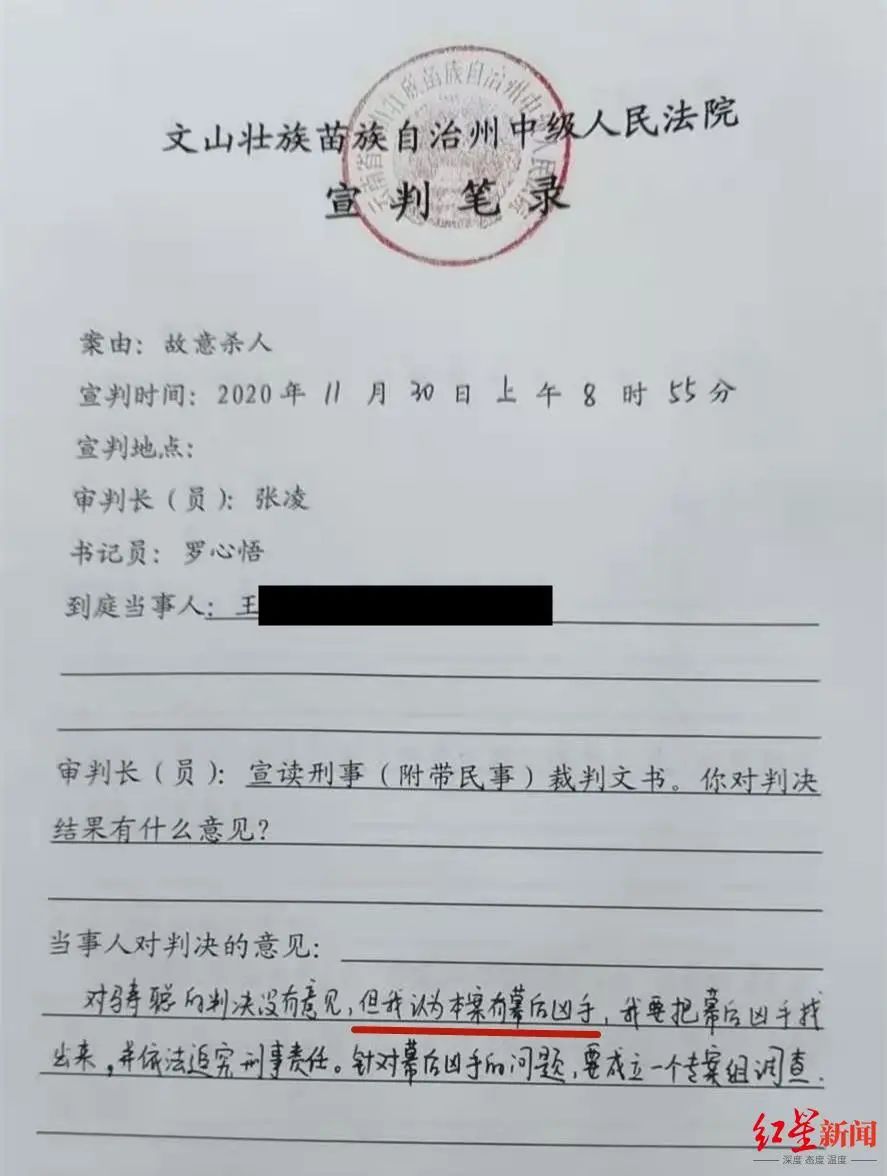 文山壮族苗族自治州中级人民法院
宣判笔录
案由：故意杀人
宣判时间：2020年 11 月 30 日 上 午 8 时 55 分
宣判地点：
审判长（员）：张凌
书记员：罗心悟
到庭当事人：王
审判长（员）：宣读刑事（附带民事）裁判文书。你对判决
结果有什么意见？
当事人对判决的意见：
对骑聪的判决没有意见，但我认为本案有幕后凶手，我要把幕后凶手找
出来，并依法追究刑事责任。针对幕后凶手的问题，要成立一个专案组调查.
红星新闻
深度 态度 温度